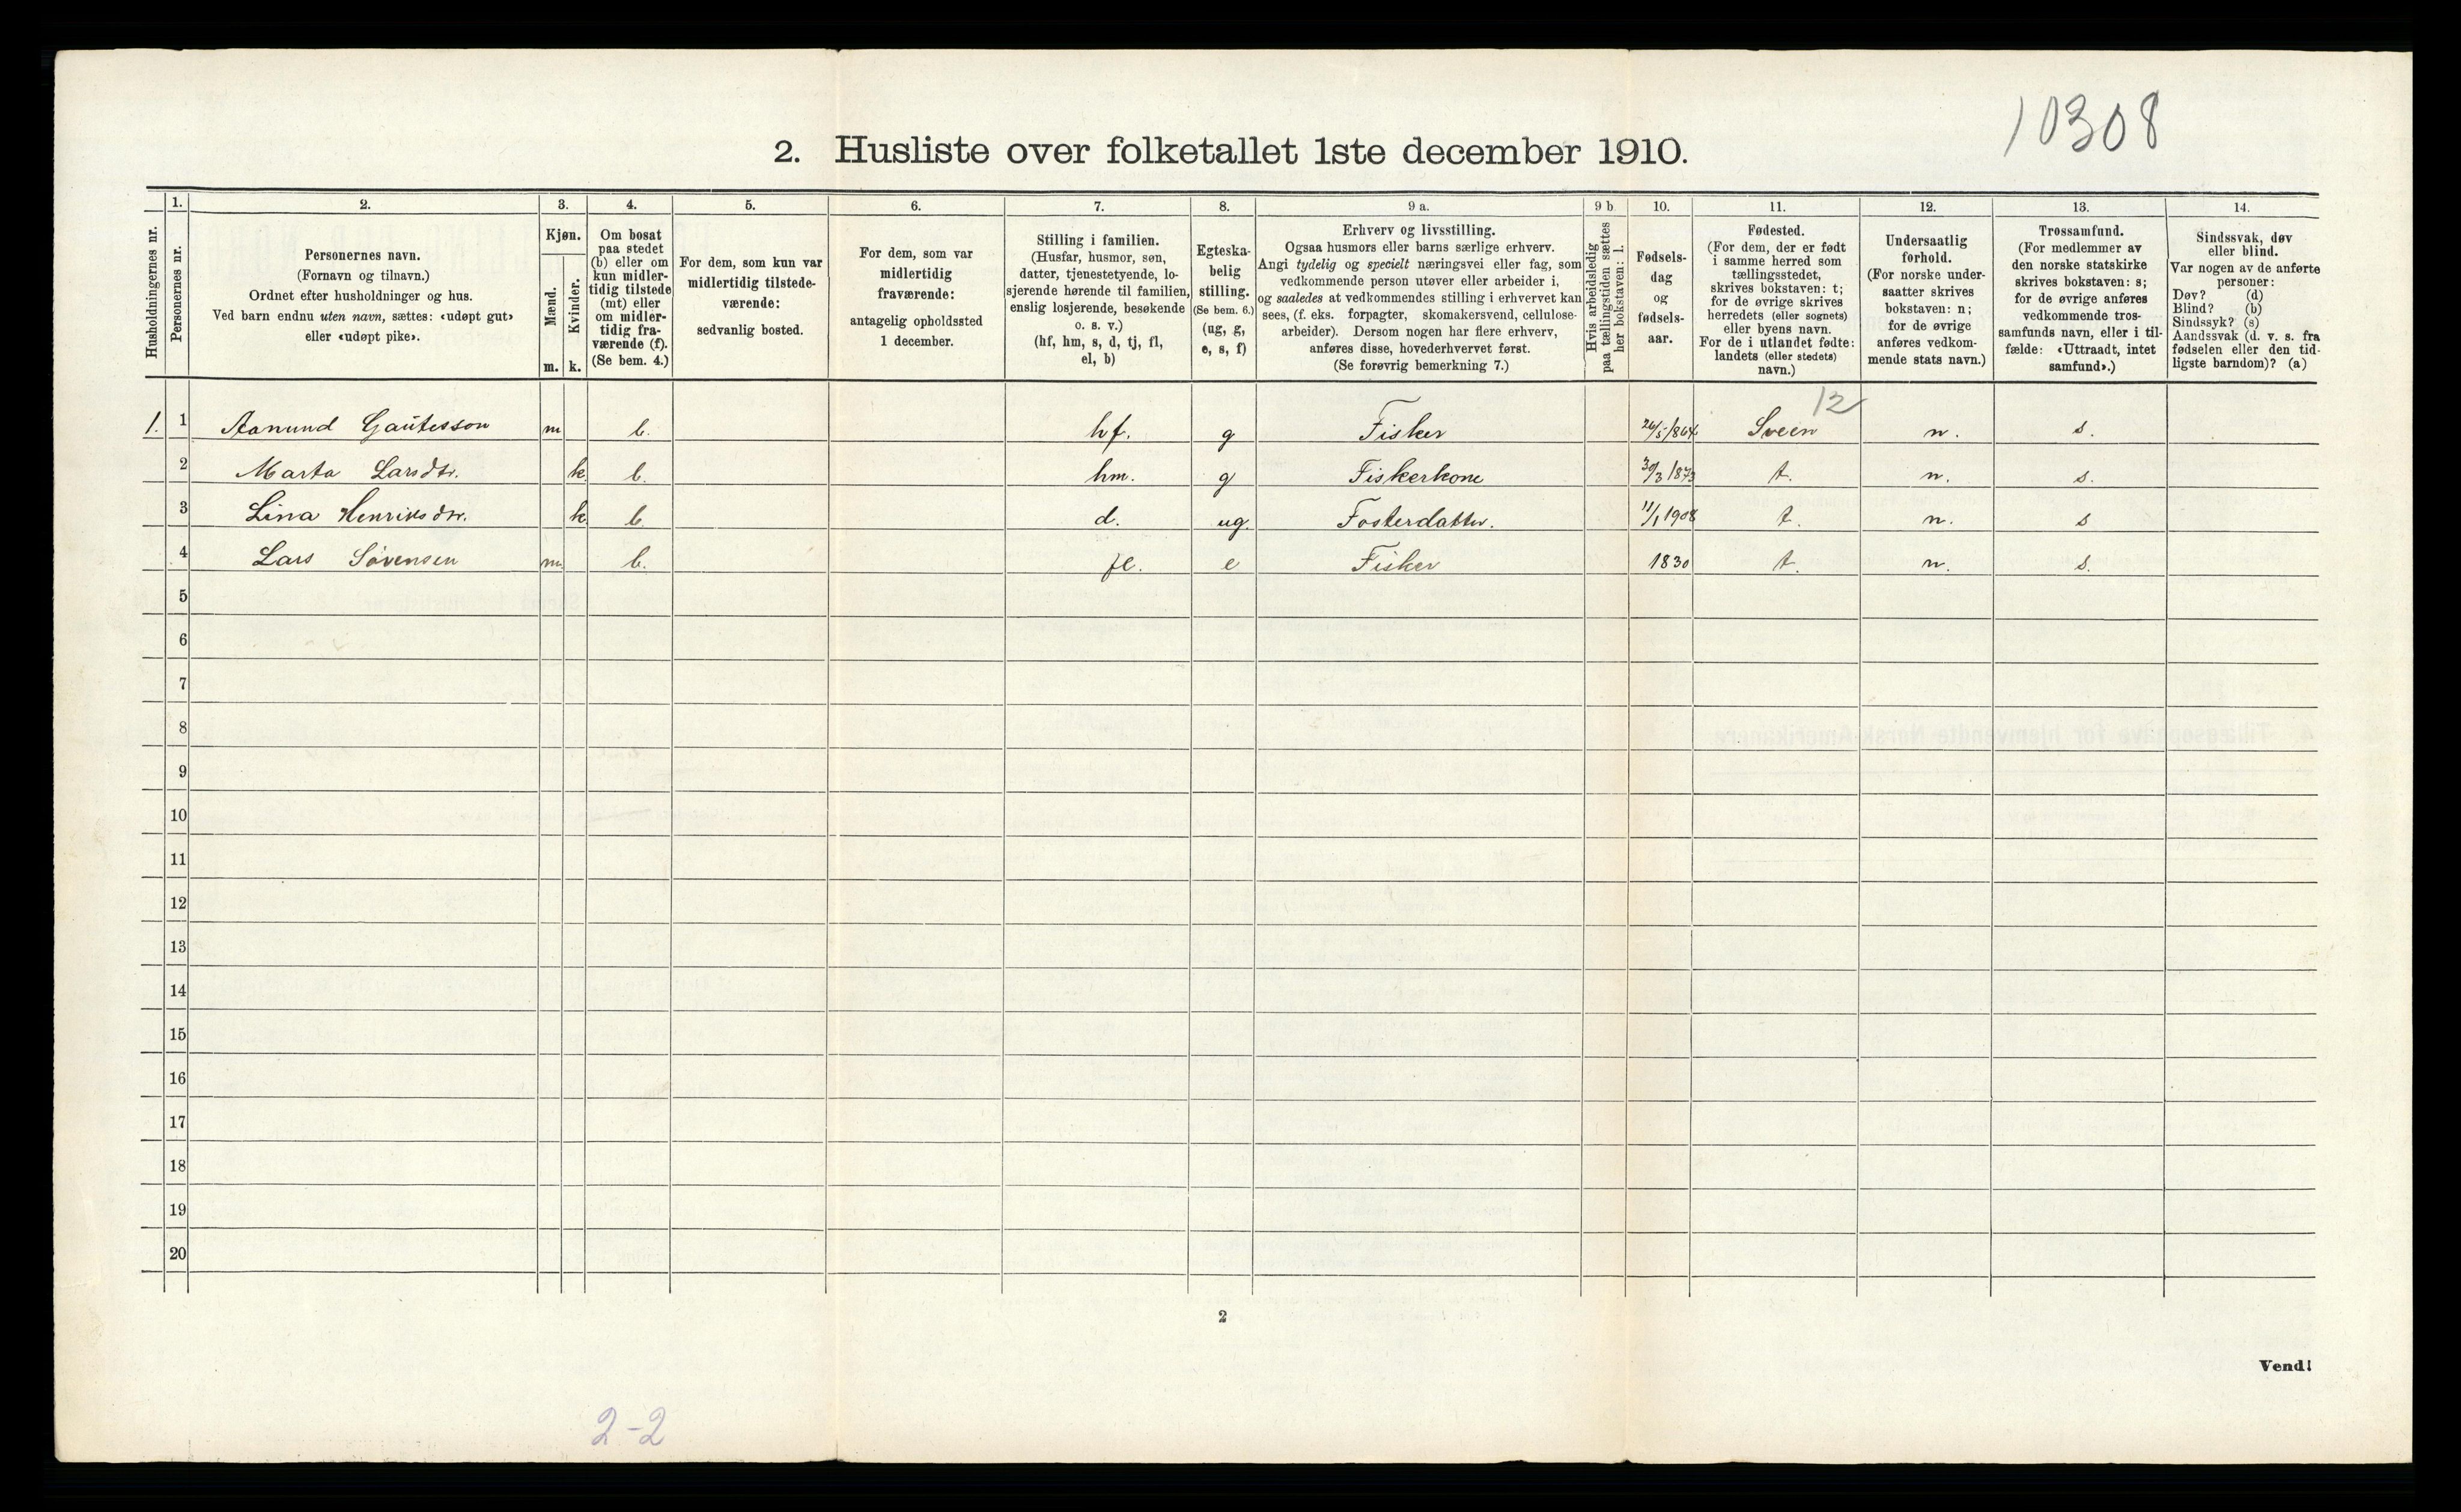 10308
2. Husliste over folketallet 1ste december 1910.
Husholdningernes nr.
1.
Personernes nr.
2.
Personernes navn.
(Fornavn og tilnavn.)
Ordnet efter husholdninger og hus.
Ved barn endnu uten navn, sættes: «udøpt gut»
eller «udøpt pike».
3.
Kjøn.
Mænd.
m.
Kvinder.
k.
4.
Om bosat
paa stedet
(b) eller om
kun midler-
tidig tilstede
(mt) eller
om midler-
tidig fra-
værende (f).
(Se bem. 4.)
5.
For dem, som kun var
midlertidig tilstede-
værende:
sedvanlig bosted.
6.
For dem, som var
midlertidig
fraværende:
antagelig opholdssted
1 december.
7.
Stilling i familien.
(Husfar, husmor, søn,
datter, tjenestetyende, lo-
sjerende hørende til familien,
enslig losjerende, besøkende
o. s. v.)
(hf, hm, s, d, tj, fl,
el, b)
8.
Egteska-
belig
stilling.
(Se bem. 6.)
(ug, g,
e, s, f)
9 a.
Erhverv og livsstilling.
Ogsaa husmors eller barns særlige erhverv.
Angi tydelig og specielt næringsvei eller fag, som
vedkommende person utøver eller arbeider i,
og saaledes at vedkommendes stilling i erhvervet kan
sees, (f. eks. forpagter, skomakersvend, cellulose-
arbeider). Dersom nogen har flere erhverv,
anføres disse, hovederhvervet først.
(Se forøvrig bemerkning 7.)
9 b
Hvis arbeidsledig
paa tællingstiden sættes
her bokstaven: l.
10.
Fødsels-
dag
og
fødsels-
aar.
11.
Fødested.
(For dem, der er født
i samme herred som
tællingsstedet,
skrives bokstaven: t;
for de øvrige skrives
herredets (eller sognets)
eller byens navn.
For de i utlandet fødte:
landets (eller stedets)
navn.)
12.
Undersaatlig
forhold.
(For norske under-
saatter skrives
bokstaven: n;
for de øvrige
anføres vedkom-
mende stats navn.)
13.
Trossamfund.
(For medlemmer av
den norske statskirke
skrives bokstaven: s;
for de øvrige anføres
vedkommende tros-
samfunds navn, eller i til-
fælde: «Uttraadt, intet
samfund».)
14.
Sindssvak, døv
eller blind.
Var nogen av de anførte
personer:
Døv? (d)
Blind? (b)
Sindssyk? (s)
Aandssvak (d. v. s. fra
fødselen eller den tid-
ligste barndom)? (a)
12
1. 1 Aanund Gautesson m b. hf. g Fisker 26/5 1864 Sveen n. s.
2 Marta Larsdtr. k b. hm. g Fiskerkone 30/3 1873 t. n. s.
3 Lina Henriksdtr. k b d. ug. Fosterdatter. 11/1 1908 t. n. s
4 Lars Sørensen m b. fl. e Fisker 1830 t. n. s.
5
6
7
8
9
10
11
12
13
14
15
16
17
18
19
20
2
Vend!
2-2